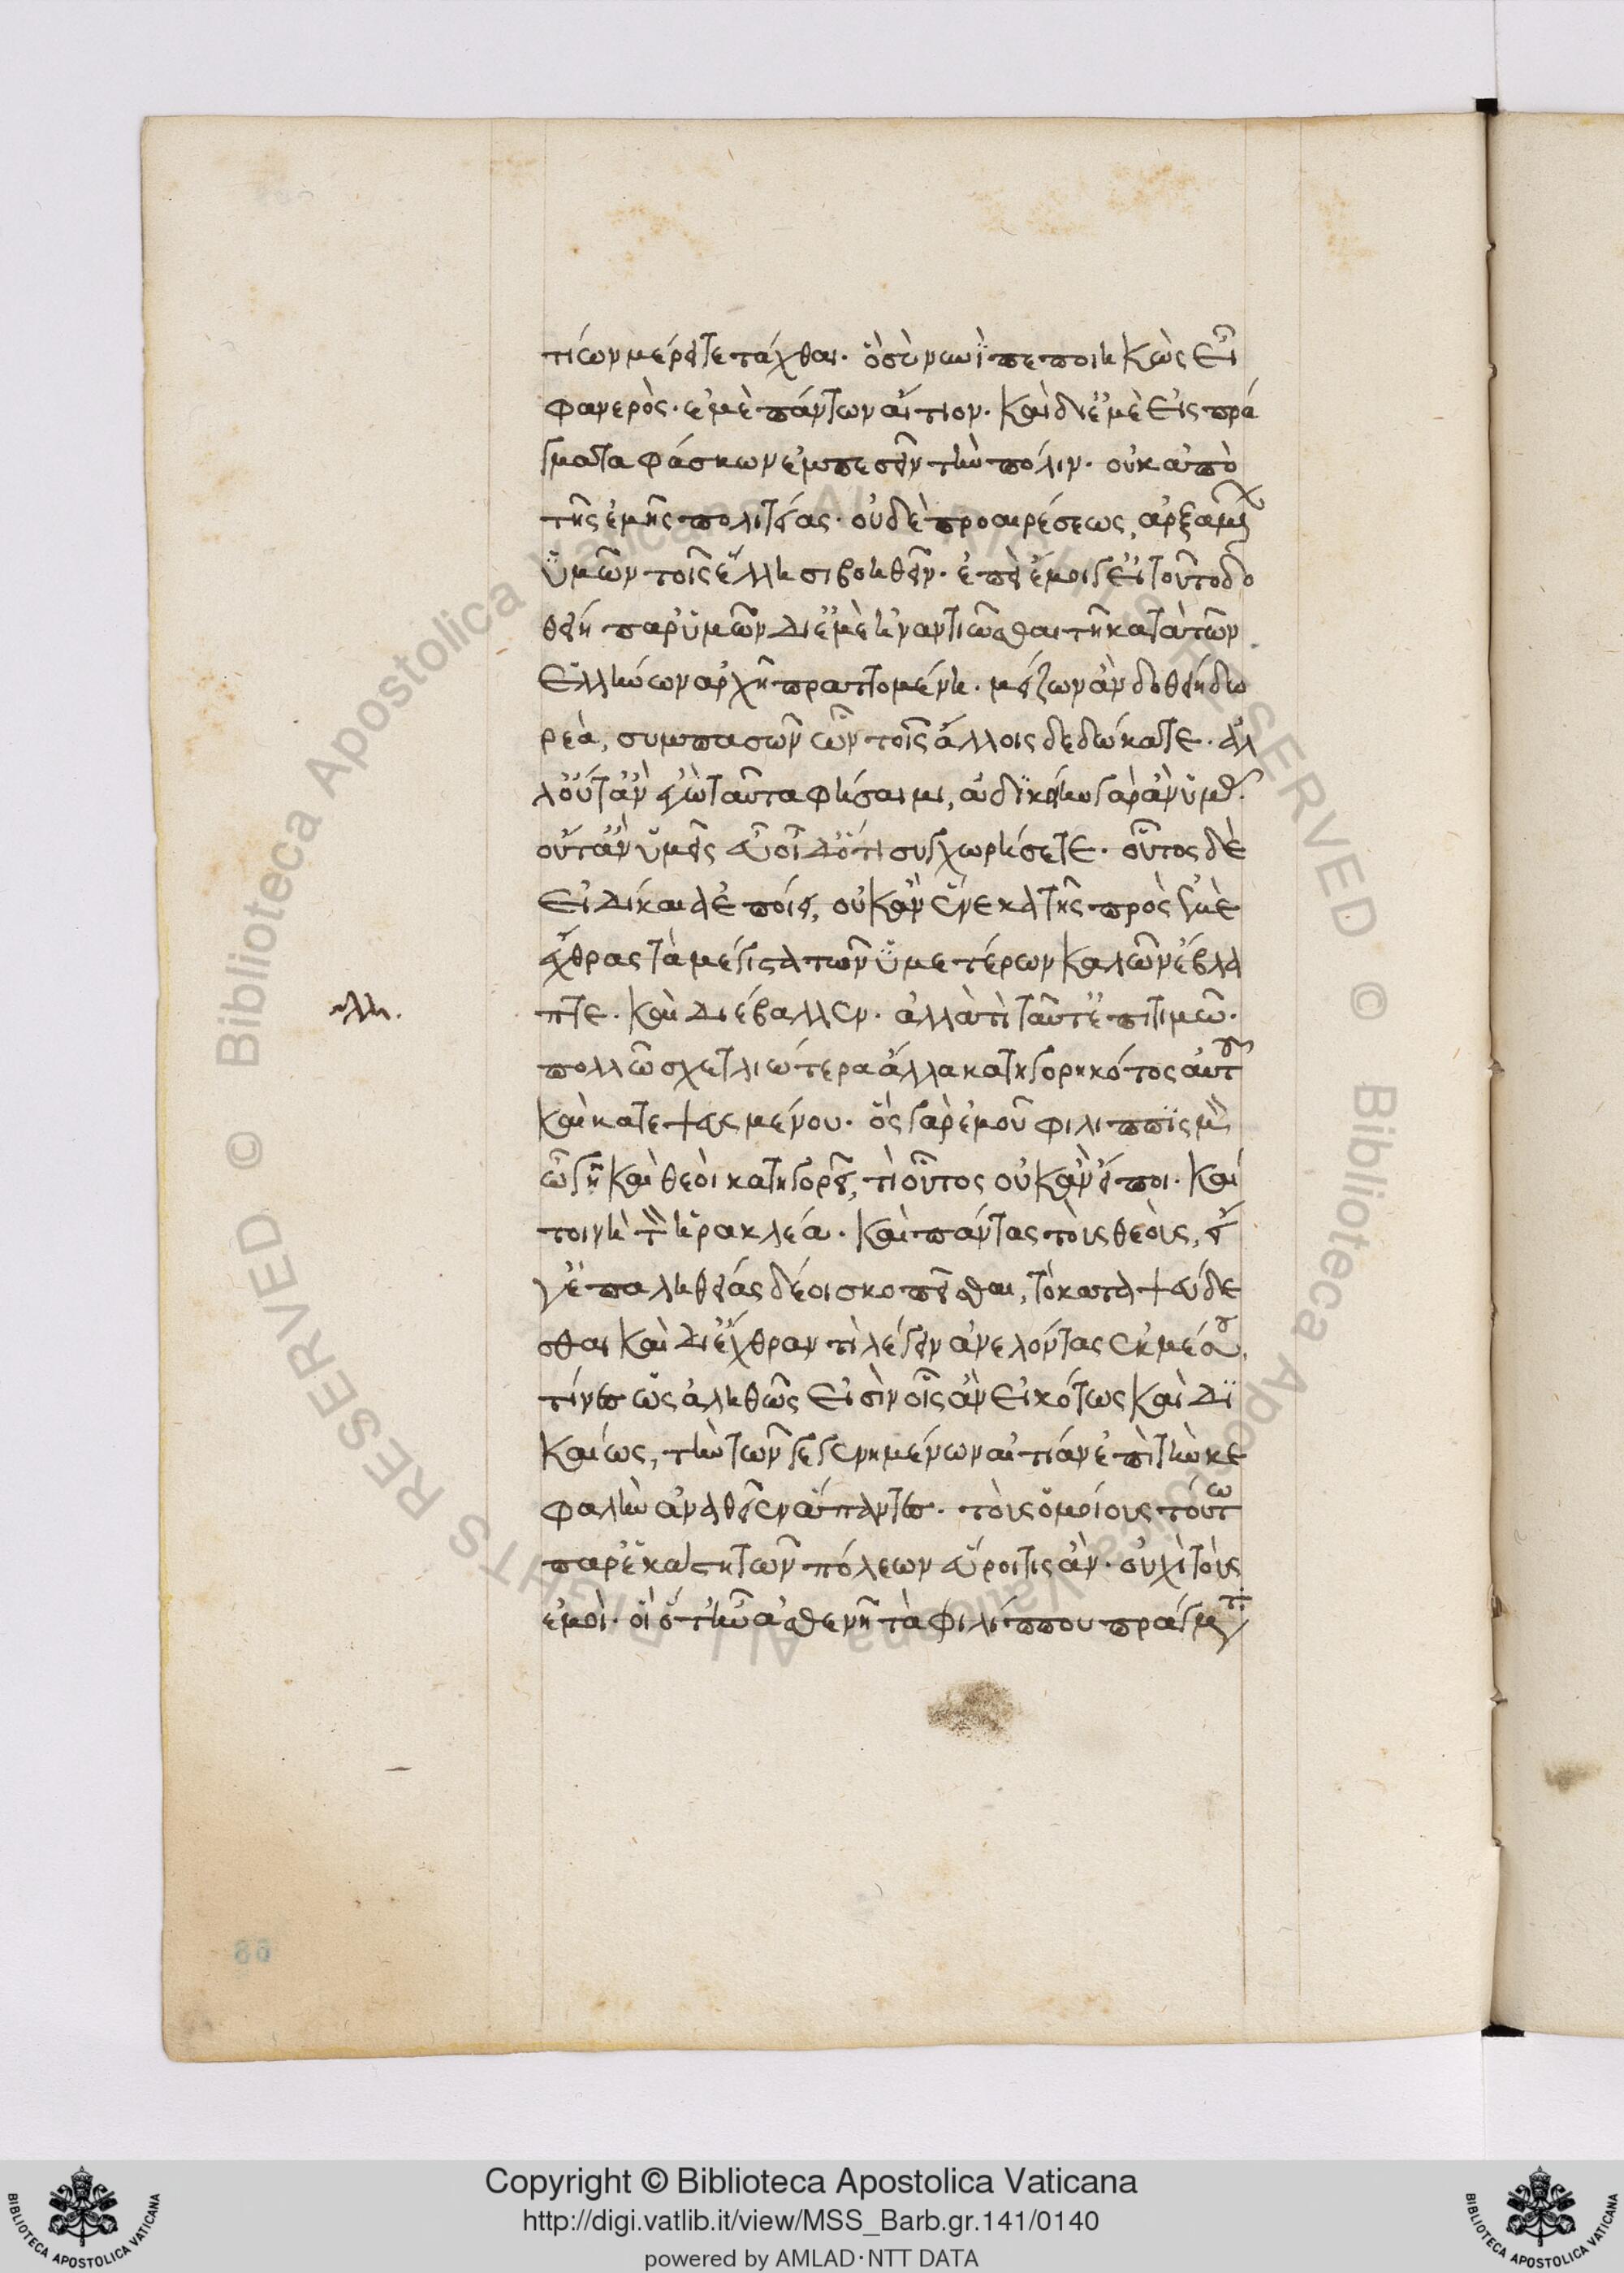 τίων μέρει τετάχθαι. ὃ σὺ νυνῒ πεποιηκὼς εἶ
φανερὸς. ἐμὲ πάντων αἴτιον. καὶ δι' ἐμὲ εἰς πρά
γματα φάσκων ἐμπεσεῖν τὴν πόλιν. οὐκ ἀπὸ
τῆς ἐμῆς πολιτείας. οὐδὲ προαιρέσεως, ἀρξαμένων
ὑμῶν τοῖς ἕλλησι βοηθεῖν. ἐπεὶ ἔμοιγ' εἰ τοῦτο δο
θείη παρ' ὑμῶν, δι' ἐμὲ ἠναντιῶσθαι τῆ κατὰ τῶν
Ἑλλήνων ἀρχῆ πραττομένη. μείζων ἂν δοθείη δω
ρεὰ, συμπασῶν ὧν τοῖς ἄλλοις δεδώκατε. ἀλ
λ' οὔτ' ἂν ἐγὼ ταῦτα φήσαιμι, ἀδϊκοίην γὰρ ἂν ὑμᾶς.
οὔτ' ἂν ὑμεῖς εὖ οἶδ' ὅτι συγχωρήσετε. οὗτος δὲ
εἰ δίκαια ἐποίει, οὐκ ἂν ἕνεκα τῆς πρὸς ἐμὲ
ἔχθρας τὰ μέγιστα τῶν ὑμετέρων καλῶν ἔβλα
πτε. καὶ διέβαλλεν. ἀλλὰ τὶ ταῦτ' ἐπιτιμῶ.
πολλῶ σχετλιώτερα ἄλλα κατηγορηκότος αὐτοῦ
καὶ κατεψευσμένου. ὃς γὰρ ἐμοῦ φιλιππϊσμὸν,
ὦ γῆ καὶ θεοὶ κατηγορεῖ, τὶ οὗτος οὐκ ἂν εἴποι. καί
τοι νὴ τὸν ἡρακλέα. καὶ πάντας τοὺς θεοὺς, εἴ
γ' ἐπ' ἀληθείας δέοι σκοπεῖσθαι, τὸ καταψεύδε
σθαι καὶ δι' ἔχθραν τὶ λέγειν ἀνελόντας ἐκ μέσου,
τίνες ὡς ἀληθῶς εἰσὶν οἷς ἂν εἰκότως καὶ δϊ
καίως, τὴν τῶν γεγενημένων αἰτίαν ἐπὶ τὴν κε
φαλὴν ἀναθεῖεν ἅπαντες. τοὺς ὁμοίους τούτω
παρ' ἑκάστη τῶν πόλεων εὕροι τις ἂν. οὐχὶ τοὺς
ἐμοὶ. οἳ ὅτ' ἦν ἀσθενῆ τὰ φιλίππου πράγματα